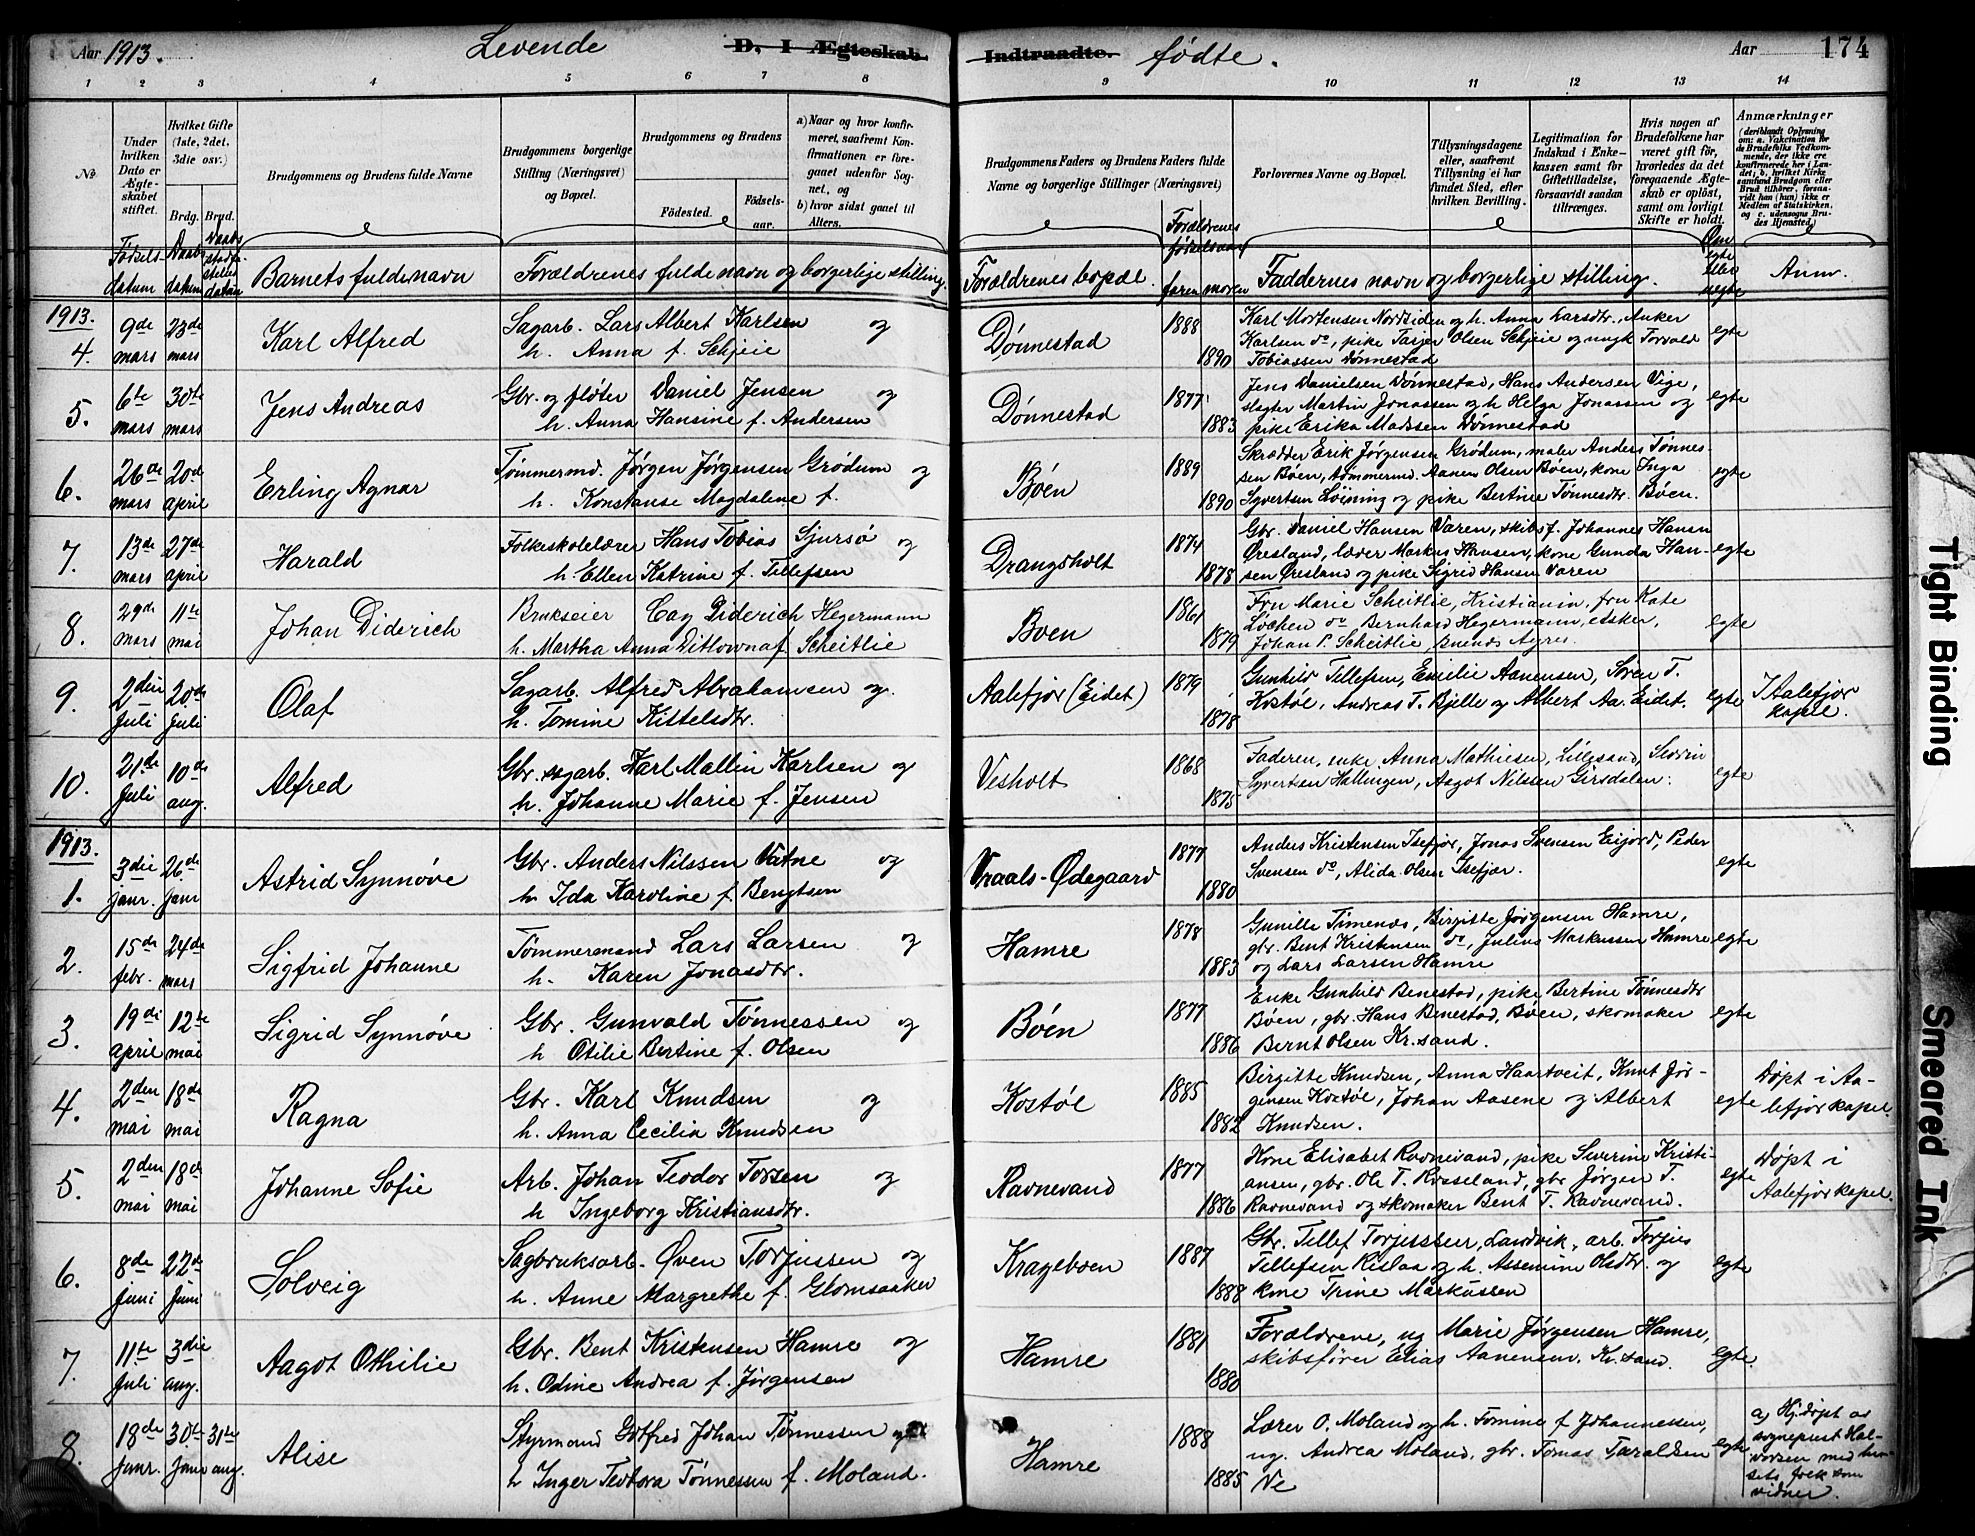 Aar 1913. Levende D. I Ægteskab Indtraadte. fødte. Aar 174
1 2 3 4 5 6 7 8 9 10 11 12 13 14
No
Under hvilken Dato er Ægteskabet stiftet.
Hvilket Gifte (1ste, 2det, 3die osv.)
Brdg. Brud.
Brudgommens og Brudens fulde Navne
Brudgommens borgerlige Stilling (Næringsvei) og Bopæl.
Brudgommens og Brudens
Fødested. Fødselsaar.
a) Naar og hvor konfirmeret, saafremt Konfirmationen er foregaaet udenfor Sognet, og
b) hvor sidst gaaet til Alters.
Brudgommens Faders og Brudens Faders fulde Navne og borgerlige Stillinger (Næringsvei)
Forlovernes Navne og Bopæl.
Tillysningsdagene eller, saafremt Tillysning ei har fundet Sted, efter hvilken Bevilling.
Legitimation for Indskud i Enkekassen samt for Giftetilladelse, forsaavidt saadan tiltrænges.
Hvis nogen af Brudefolkene har været gift før, hvorledes da det foregaaende Ægteskab er opløst, samt om lovligt Skifte er holdt.
Anmærkninger
(deriblandt Oplysning om: a. Vakcination for de Brudefolks Vedkommende, der ikke ere konfirmerede her i Landet; b. hvilket Kirkesamfund Brudgom eller Brud tilhører, forsaavidt han (hun) ikke er Medlem af Statskirken, og c. udensogns Brudes Hjemsted.)
Fødselsdatum
Daabsdatum
Daabs stadfæstelses datum
Barnets fulde navn
Forældrenes fulde navn og borgerlige stilling.
Forældrenes bopæl.
Forældrenes fødselsaar
faren moren
Faddernes navn og borgerlige stilling.
Om egte eller uegte
Anm.
1913.
4. 9de mars 23de mars Karl Alfred
Sagarb. Lars Albert Karlsen og
h. Anna f. Schjeie
Dønnestad 1888 1890
Karl Mortensen Nordsiden og h. Anna Larsdtr., Anker
Karlsen do, pike Tarjer Olsen Schjeie og ungk Torvald
Tobiassen Dønnestad
egte
5. 6te mars 30te mars Jens Andreas
Gbr. og fløter Daniel Jensen og
h. Anna Hansine f. Andersen
Dønnestad 1877 1883
Jens Danielsen Dønnestad, Hans Andersen Vige,
slagter Martin Jonassen og h Helga Jonassen og
pike Erika Madssen Dønnestad
egte
6. 26de mars 20de april Erling Agnar
Tømmermd. Jørgen Jørgensen Grødum og
h. Konstanse Magdalene f.
Bøen 1889 1890
Skrædder Erik Jørgensen Grødum, maler Anders Tønnes-
sen Bøen, tømmermd. Aanen Olsen Bøen, kone Inga
Syvertsen Løining og pike Bertine Tønnesdtr. Bøen.
egte
7. 13de mars 27de april Harald
Folkeskolelærer Hans Tobias Sjursø og
h Ellen Katrine f. Tellefsen
Drangsholt 1874 1878
Gbr. Daniel Hansen Varen, skibsf. Johannes Hansen
Øresland, lærer Markus Hansen, kone Gunda Han-
sen Øresland og pike Sigrid Hansen Varen
egte
8. 29de mars 11te mai Johan Diderich
Brukseier Cay Diderich Hegermann
h. Martha Anna Ditlovna f. Scheitlie
Boen 1861 1879
Fru Marie Scheitlie, Kristiania, fru Kate
Løchen do Bernhard Hegermann, elsker,
Johan P. Scheitlie, Buenos Ayres.
egte
9. 2den Juli 20de Juli Olaf
Sagarb. Alfred Abrahamsen og
h. Tomine Kittelsdtr.
Aalefjør (Eidet) 1879 1878
Gunhild Tellefsen, Emilie Aanensen, Søren T.
Kostøl, Andreas T. Bjelle og Albert Aa. Eidet.
egte
I Aalefjør kapel.
10. 21de Juli 10de aug. Alfred
Gbr. sagarb. Karl Mallin Karlsen og
h. Johanne Marie f. Jensen
Vesholt 1868 1875
Faderen, enke Anna Mathiesen, Lillesand, Severin
Syvertsen Hallingen, Aagot Nilssen Girsdalen.
egte
1913.
1. 3die janr. 26de janr Astrid Synnøve
Gbr. Anders Nilssen Vatne og
h. Ida Karoline f. Bengtsen
Vraals-Ødegaard 1877 1880
Anders Kristensen Isefjør, Jonas Svensen Eigjord, Peder
Svensen do, Alida Olsen Isefjør.
egte
2. 15de febr. 24de mars Sigfrid Johanne
Tømmermand Lars Larsen og
h. Karen Jonasdtr.
Hamre 1878 1883
Gunille Timenes, Birgitte Jørgensen Hamre,
gbr. Bent Kristensen do, Julius Markussen Hamre
og Lars Larsen Hamre
egte
3. 19de april 12te mai Sigrid Synnøve
Gbr. Gunvald Tønnessen og
h Otilie Bertine f. Olsen
Bøen 1877 1886
Enke Gunhild Benestad, pike Bertine Tønnesdtr
Bøen, gbr. Hans Benestad, Bøen, skomaker
Bernt Olsen Kr.sand.
egte
4. 2den mai 18de mai Ragna
Gbr. Karl Knudsen og
h. Anna Cecilia Knudsen
Kostøl 1885 1882
Birgitte Knudsen, Anna Haartveit, Knut Jør-
gensen Kostøl, Johan Aasene og Albert
Knudsen.
egte
Døpt i Aa-
lefjør kapel.
5. 2den mai 18de mai Johanne Sofie
Arb. Johan Teodor Torsen og
h Ingeborg Kristiansdtr.
Ravnevand 1877 1886
Kone Elisabet Ravnevand, pike Severine Kristi-
ansen, gbr. Ole T. Rosseland, gbr Jørgen T.
Ravnevand og skomaker Bent T. Ravnevand.
egte
Døpt i
Aalefjør kapel.
6. 8de juni 22de juni Solveig
Sagbruksarb. Øven Torjussen og
h. Anne Margrethe f. Glomsaaker
Krageboen 1887 1888
Gbr. Tellef Torjussen, Landvik, arb. Torjus
Tellefsen Rislaa og h. Assemine Olsdtr. og
kone Trine Markussen
egte
7. 11te Juli 3die aug. Aagot Othilie
Gbr. Bent Kristensen Hamre og
h. Odine Andrea f. Jørgensen
Hamre 1881 1880
Forældrene, ug Marie Jørgensen Hamre,
skibsfører Elias Aanensen, Kr.sand.
egte.
8. 18de janr. 30te janr 31te aug. Alise
Styrmand Gotfred Johan Tønnessen og
h Inger Teodora Tønnessen f. Moland.
Hamre 1888 1885
Lærer O. Moland og h. Tomine f Johannessen,
ug. Andrea Moland, gbr. Tomas Taraldsen
Ve
egte
a) Hj.døpt av
sogneprest Hal-
vorsen med hu-
sets folk som
vidner.
Tight Binding
Smeared Ink